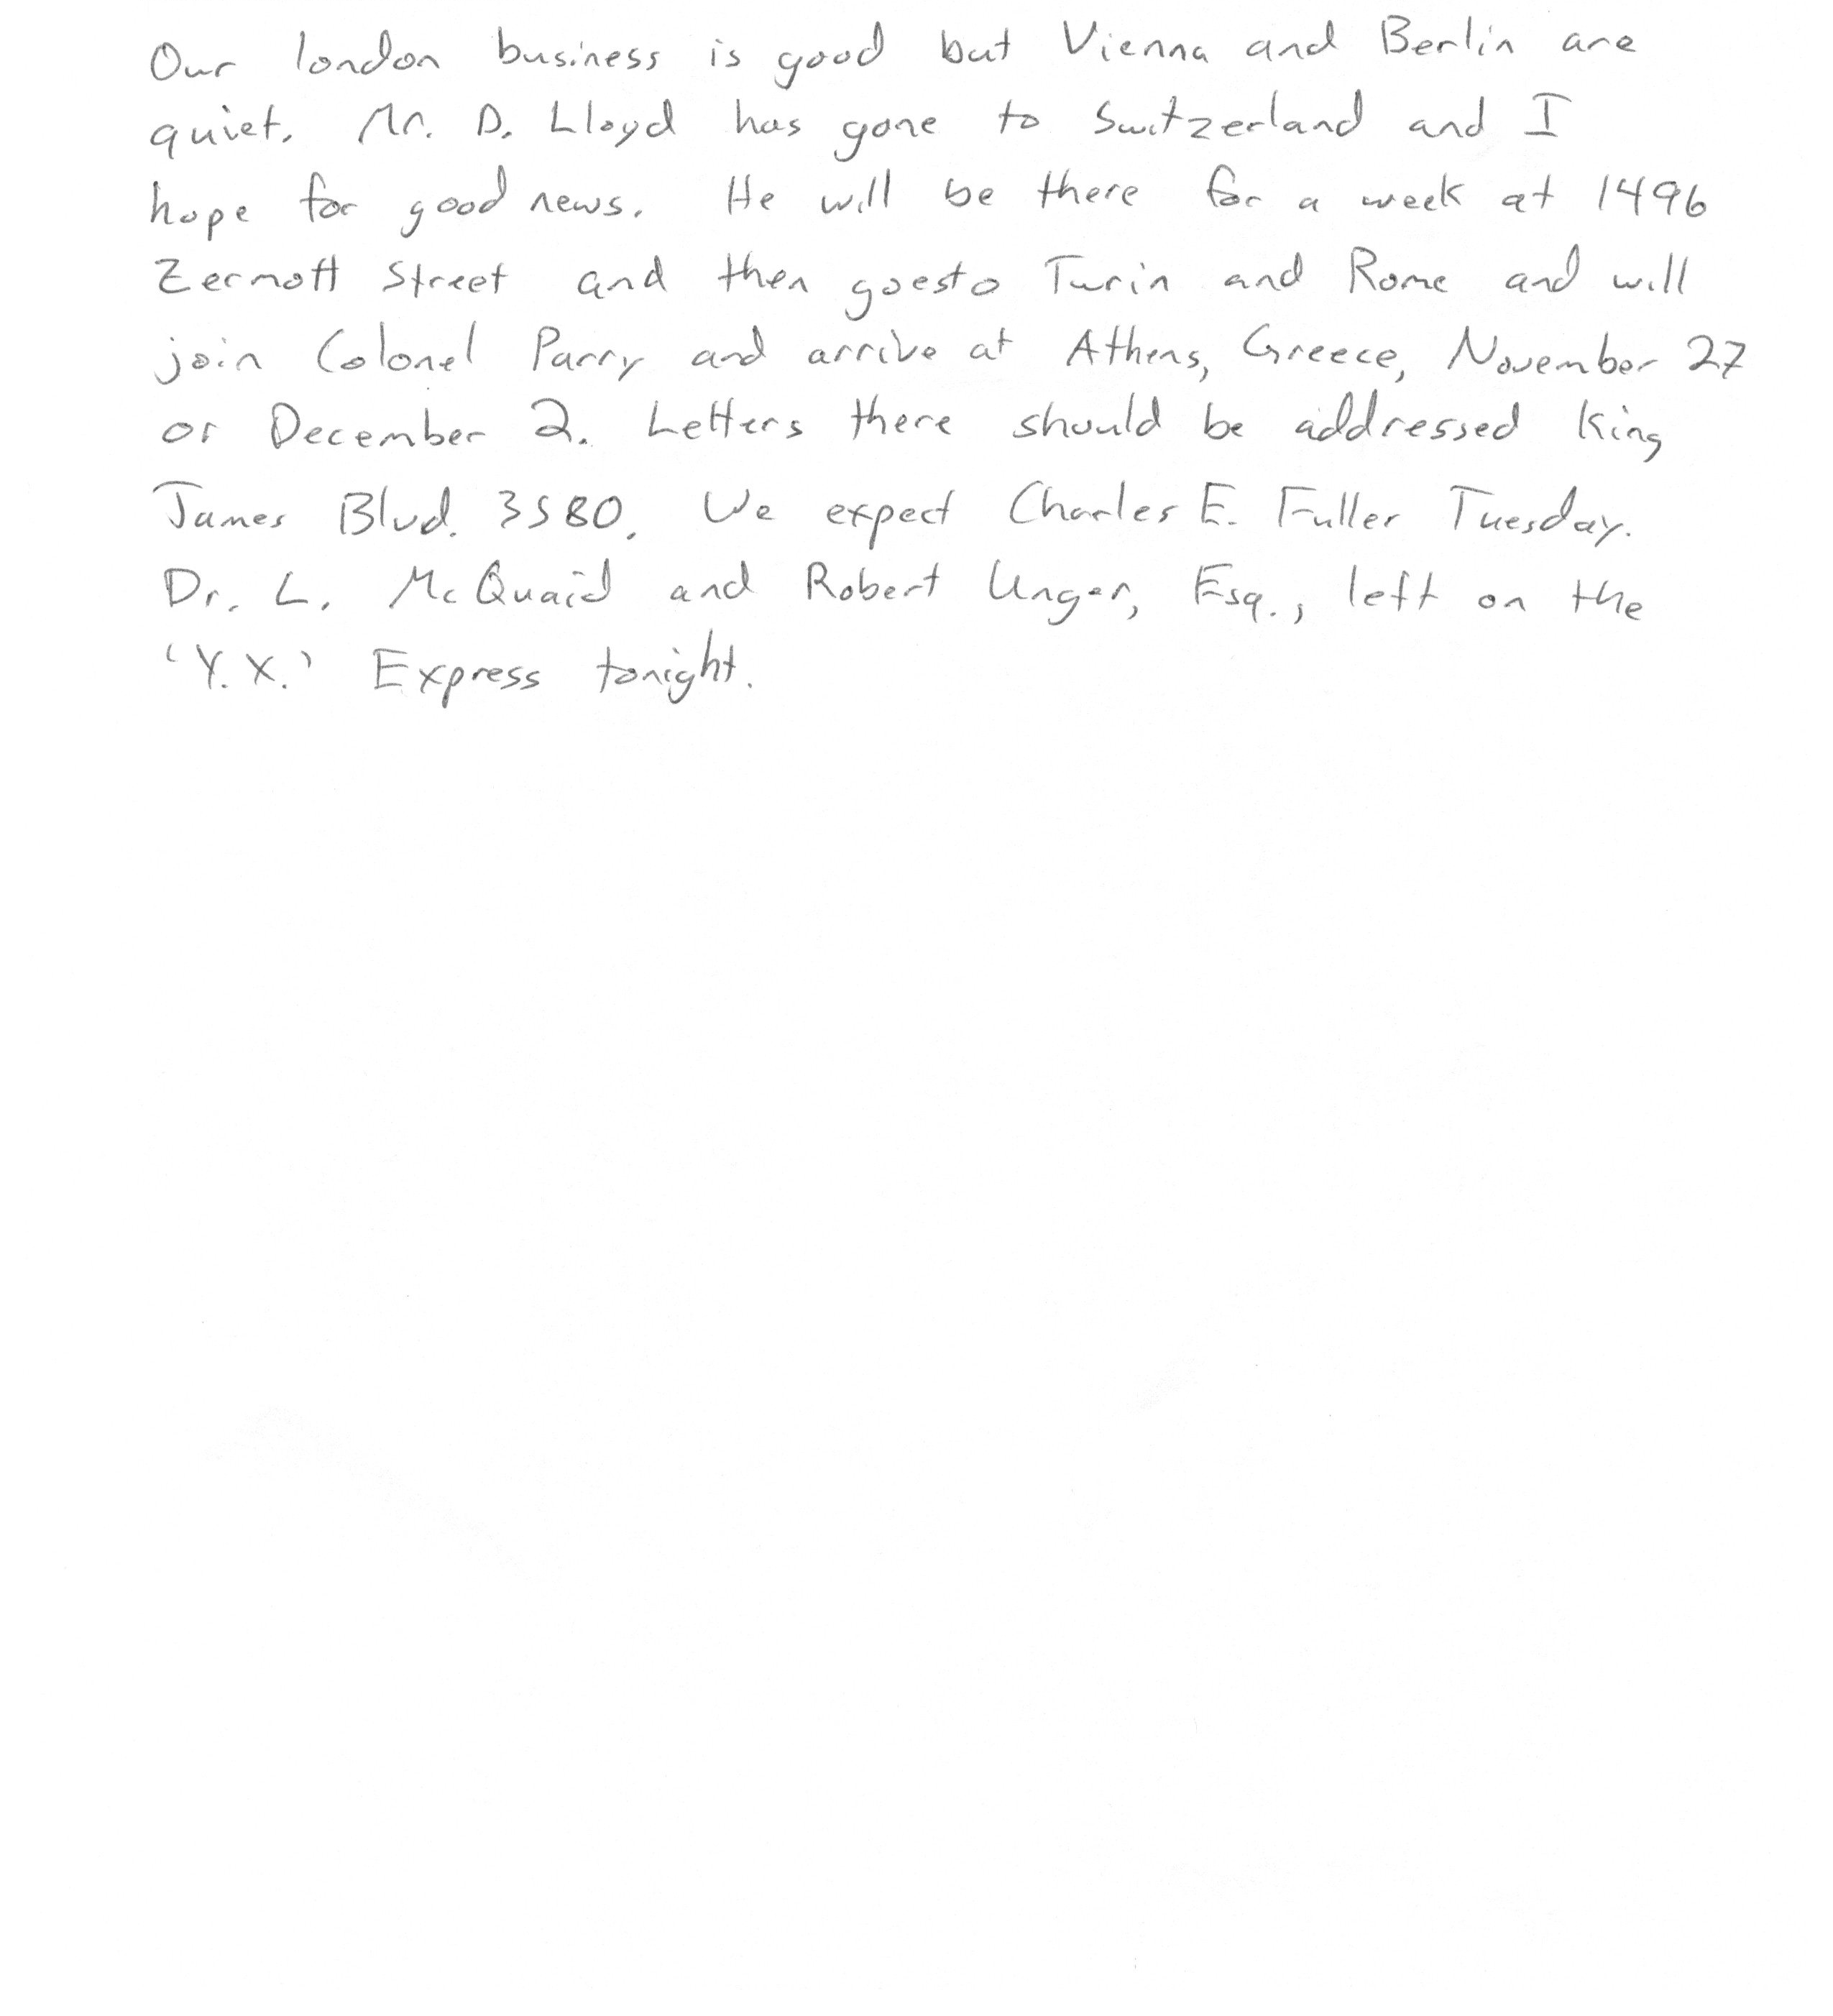 Our london business is good but Vienna and Berlin are
quiet. Mr. D. Lloyd has gone to Switzerland and I
hope for good news. He will be there for a week at 1496
Zermott Street and then goesto Turin and Rome and will
join Colonel Parry and arrive at Athens, Greece, November 27
or December 2. Letters there should be addressed King
James Blvd. 3580. We expect Charles E. Fuller Tuesday.
Dr. L. McQuaid and Robert Unger, Esq., left on the
'Y.X.' Express tonight.